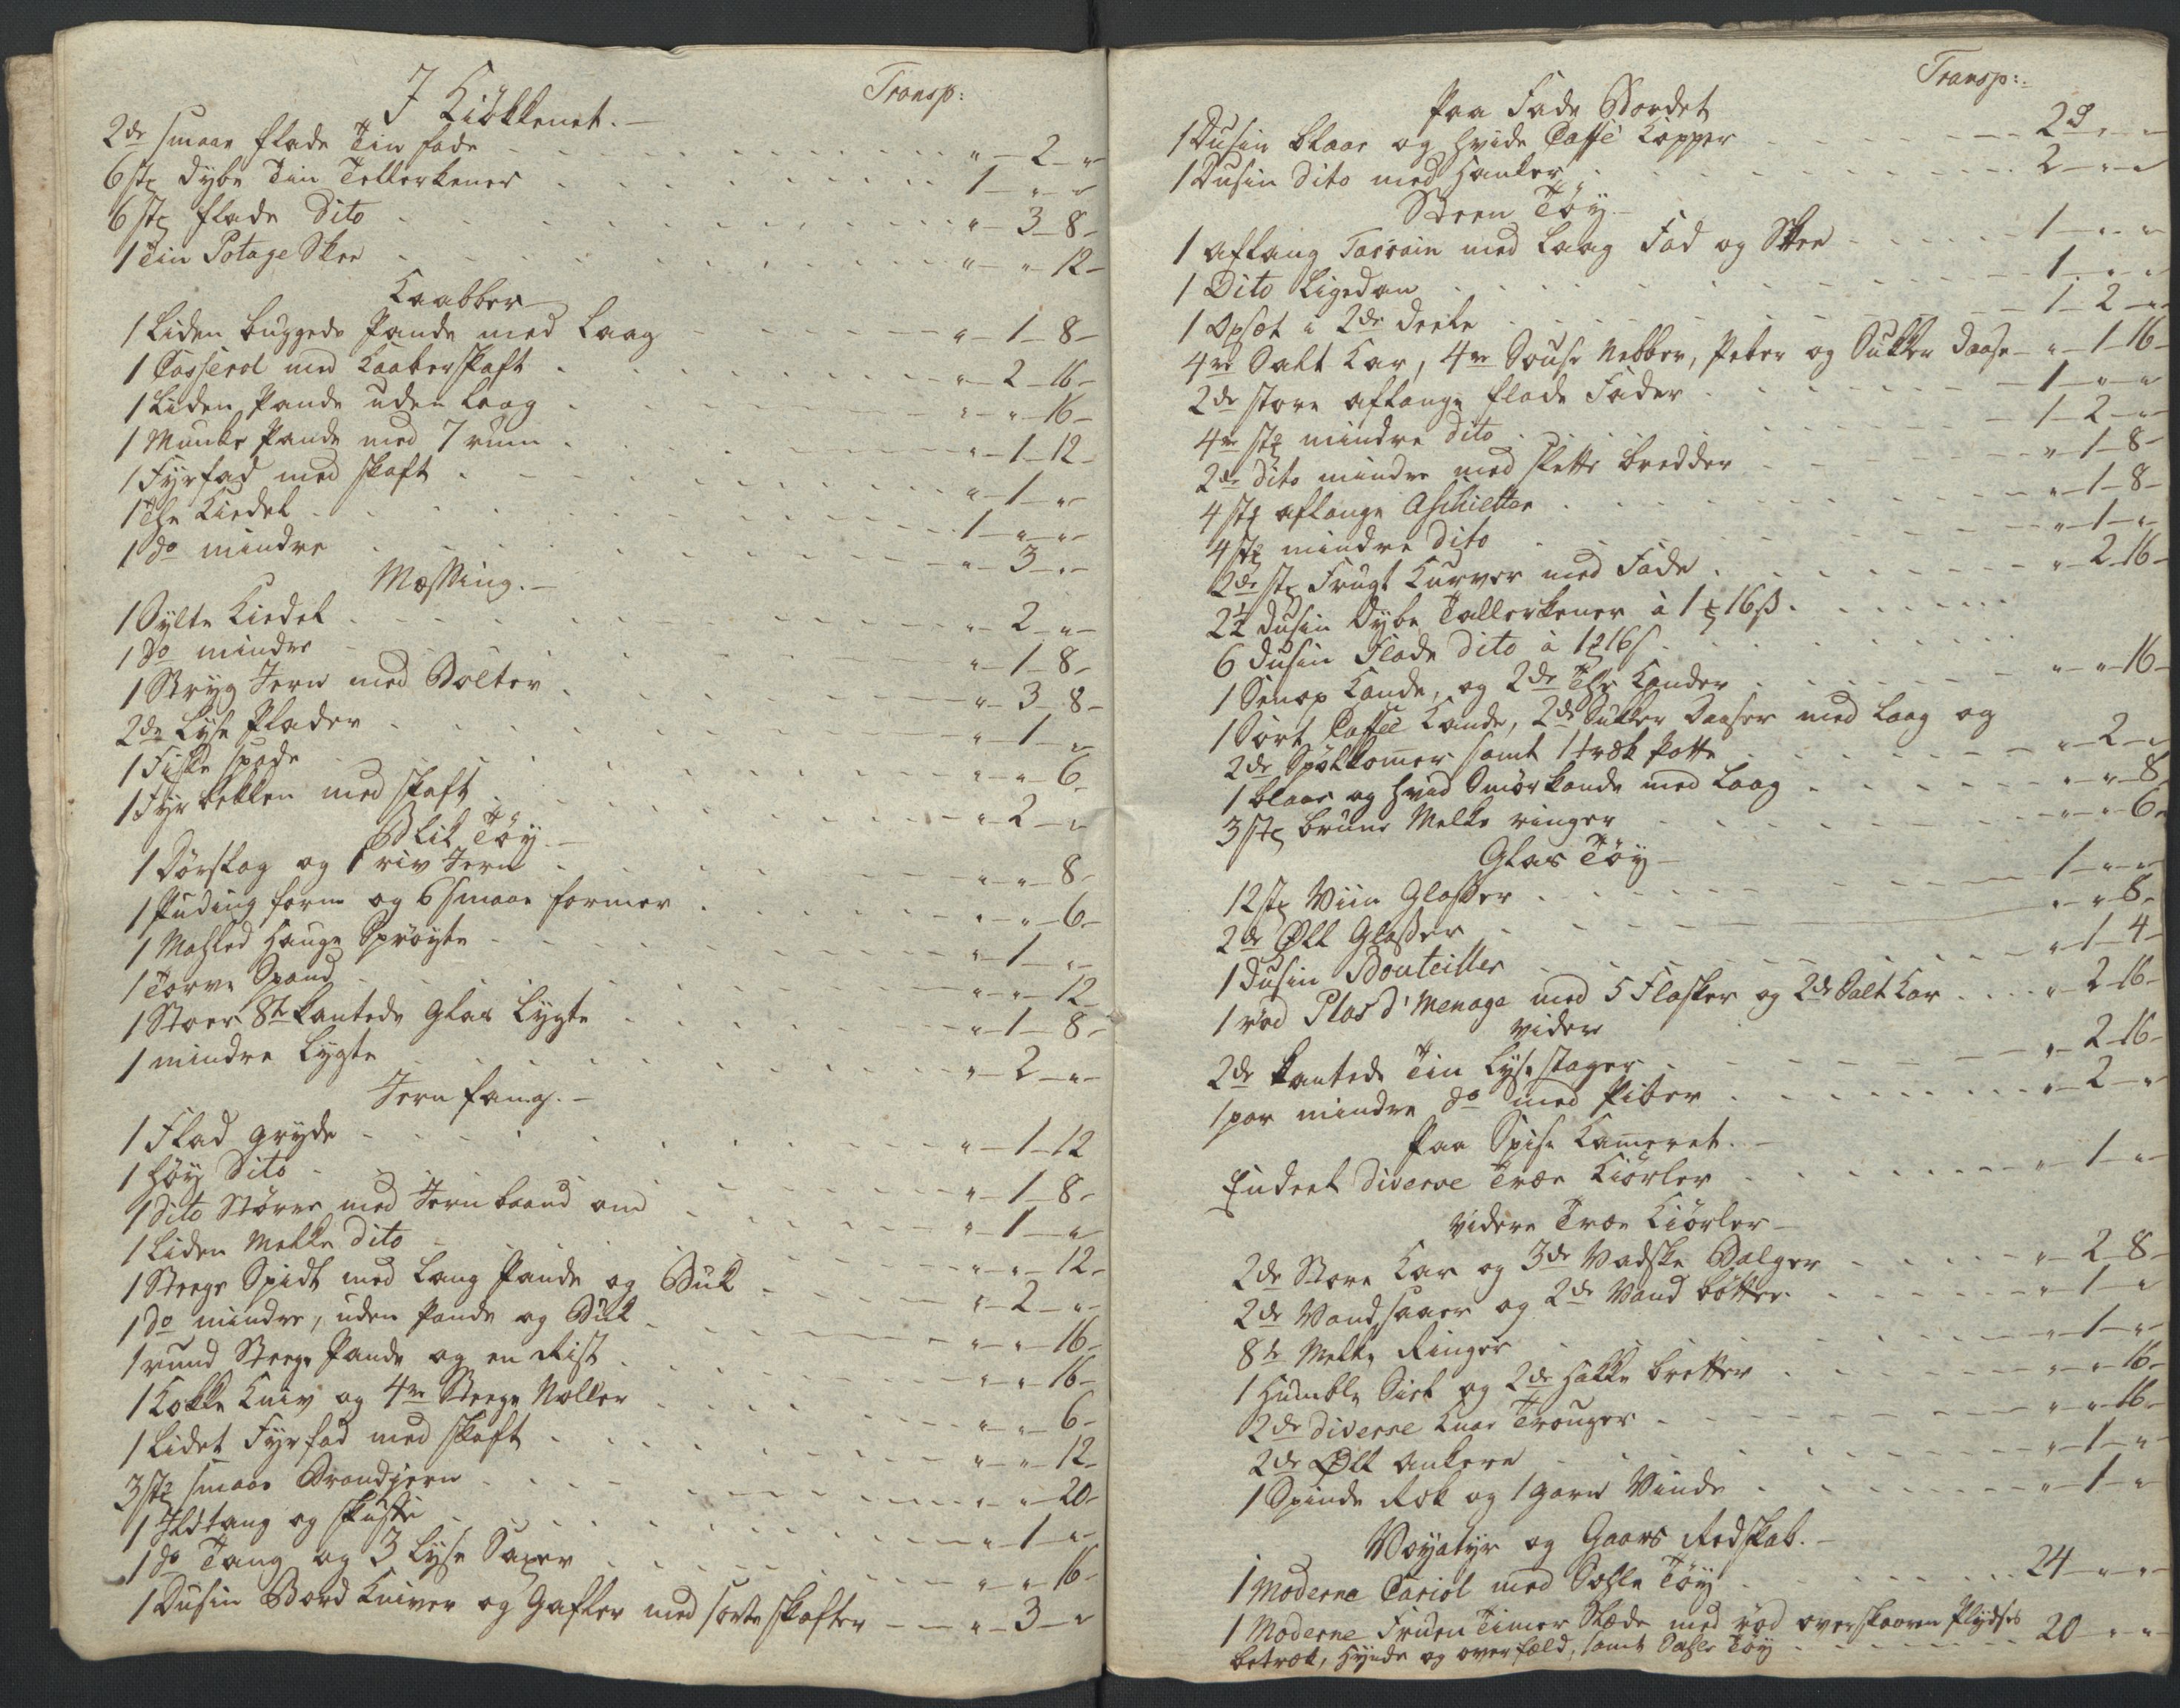 I Kiökkenet.— Transp:
2de smaae flade Tin fade - - - „—2—„
6 stk dybe Tin Tellerkener - - - 1—„—„
6 stk flade Dito - - - „—3—8—
1 Tin Potage Skee - - - „—„—12—
Kaabber
1 Liden buggede Pande med Laag - - - „—1—8—
1 Casserol med Kaaberskaft - - - „—2—16—
1 Liden Pande uden Laag - - - „—„—16—
1 Munke Pande med 7 rum - - - „—1—12—
1 Fyrfad med skaft - - - „—1—„
1 The Kiedel - - - 1—„—„
1 do mindre - - - „—3—„
Messing.—
1 Sylte Kiedel - - - „—2—„
1 do mindre - - - „—1—8—
1 Stryg Jern med Bolter - - - „—3—8—
2de Lyse Plader - - - „—1—„
1 Fiske spade - - - „—„—6—
1 Fyrbekken med skaft - - - „—2—„
Blik Töy.—
1 Dörslag og 1 riv Jern - - - „—„—8—
1 Puding form og 6 smaae former - - - „—„—6—
1 Mahled Hauge Spröyte - - - „—1—„
1 Torve Spand - - - „—„—12
1 Stoer 8te kantede Glas Lygte - - - „—1—8—
1 mindre Lygte - - - „—2—„
Jern fang.—
1 Flad gryde - - - „—1—12
1 Höy Dito - - - „—1—8—
1 Dito Större med Jern baand om - - - „—1—„
1 Liden Melke Dito - - - „—„—12—
1 Steege Spidt med Lang Pande og Buk - - - „—2—„
1 do mindre, uden Pande og Buk - - - „—„—16—
1 rund Steege Pande og en Rist - - - „—„—16—
1 Kokke Kniv og 4re Steege Noller - - - „—„—6—
1 Lidet Fyrfad med skaft - - - „—„—12—
3 stk smaae Brandjern - - - „—„—20—
1 Ildtang og skuffe - - - „—1—„
1 do Tang og 3 Lyse Saxer - - - „—„—16—
1 Dusin Bord Kniver og Gafler med sorte skafter — — „—3—„
Paa Fade Bordet Transp:
1 Dusin blaae og hvide Caffé Kopper - - - 2 „—„
1 Dusin Dito med Hanker - - - 2—„—„
Steen Töy
1 aflang Tarrain med Laag Fad og Skee - - - 1—„—„
1 Dito Ligedan - - - 1—„—„
1 Opsat i 2de Deele - - - 1—2—„
4re Salt Kar, 4re Souse Nebber, Peber og Sukker Daase „—1—16—
2de store aflange flade Fader - - - 1—„—„
4re stk mindre Dito - - - 1—2—„
2de Dito mindre med slette bredder - - - „—1—8—
4 stk aflange Aschietter - - - „—1—8—
4 stk mindre Dito - - - „—1—„
2de stk Frugt Kurver med Fade - - - „—2—16—
2½ Dusin Dybe Tallerkener à 1 16ß - - -
6 Dusin Flade Dito à 1 16ß - - -
1 Senop Kande, og 2de The Kander - - - „—„—16—
1 Sort Caffée Kande, 2de Sukker Daaser med Laag og
2de Spölkommer samt 1 træk Potte - - - „—2—„
1 blaae og hvid Smörkande med Laag - - - „—„—8
3 stk brune Melke ringer - - - „—„—6
Glas Töy
12 stk Viin Glasser - - - 1—„—„
2de Öll Glasser - - - „—„—8—
1 Dusin Bouteiller - - - „—1—4—
1 röd Plas d'Menage med 5 Flasker og 2de Salt Kar - - - „—2—16—
videre
2de kantede Tin Lysestager - - - „—2—16—
1 par mindre do med Piber - - - „—2—„
Paa Spise Kameret.—
Endeel Diverse Træe Kiörler - - - „—1—„
videre Træe Kiörler—
2de Store Kar og 3de Vadske Balger - - - „—2—8—
2de Vandsaaer og 2de Vand bötter - - - „—1—„
8te Melke Ringer - - - „—1—„
1 Humble Siel og 2de Hakke bretter - - - „—„—16—
2de Diverse Knae Trouger - - - „—„—16—
2de Öll Ankere - - - „—1—„
1 Spinde Rok og 1 garn Vinde - - - „—1—„
Voyatyr og Gaars Redskab.—
1 Moderne Cariol med Sehle Töy - - - 24—„—„
1 Moderne Fruentimer Slæde med röd overskaaren Plydses
betræk, Hynde og overfæld, samt Sehle Töy - - - 20 „ „